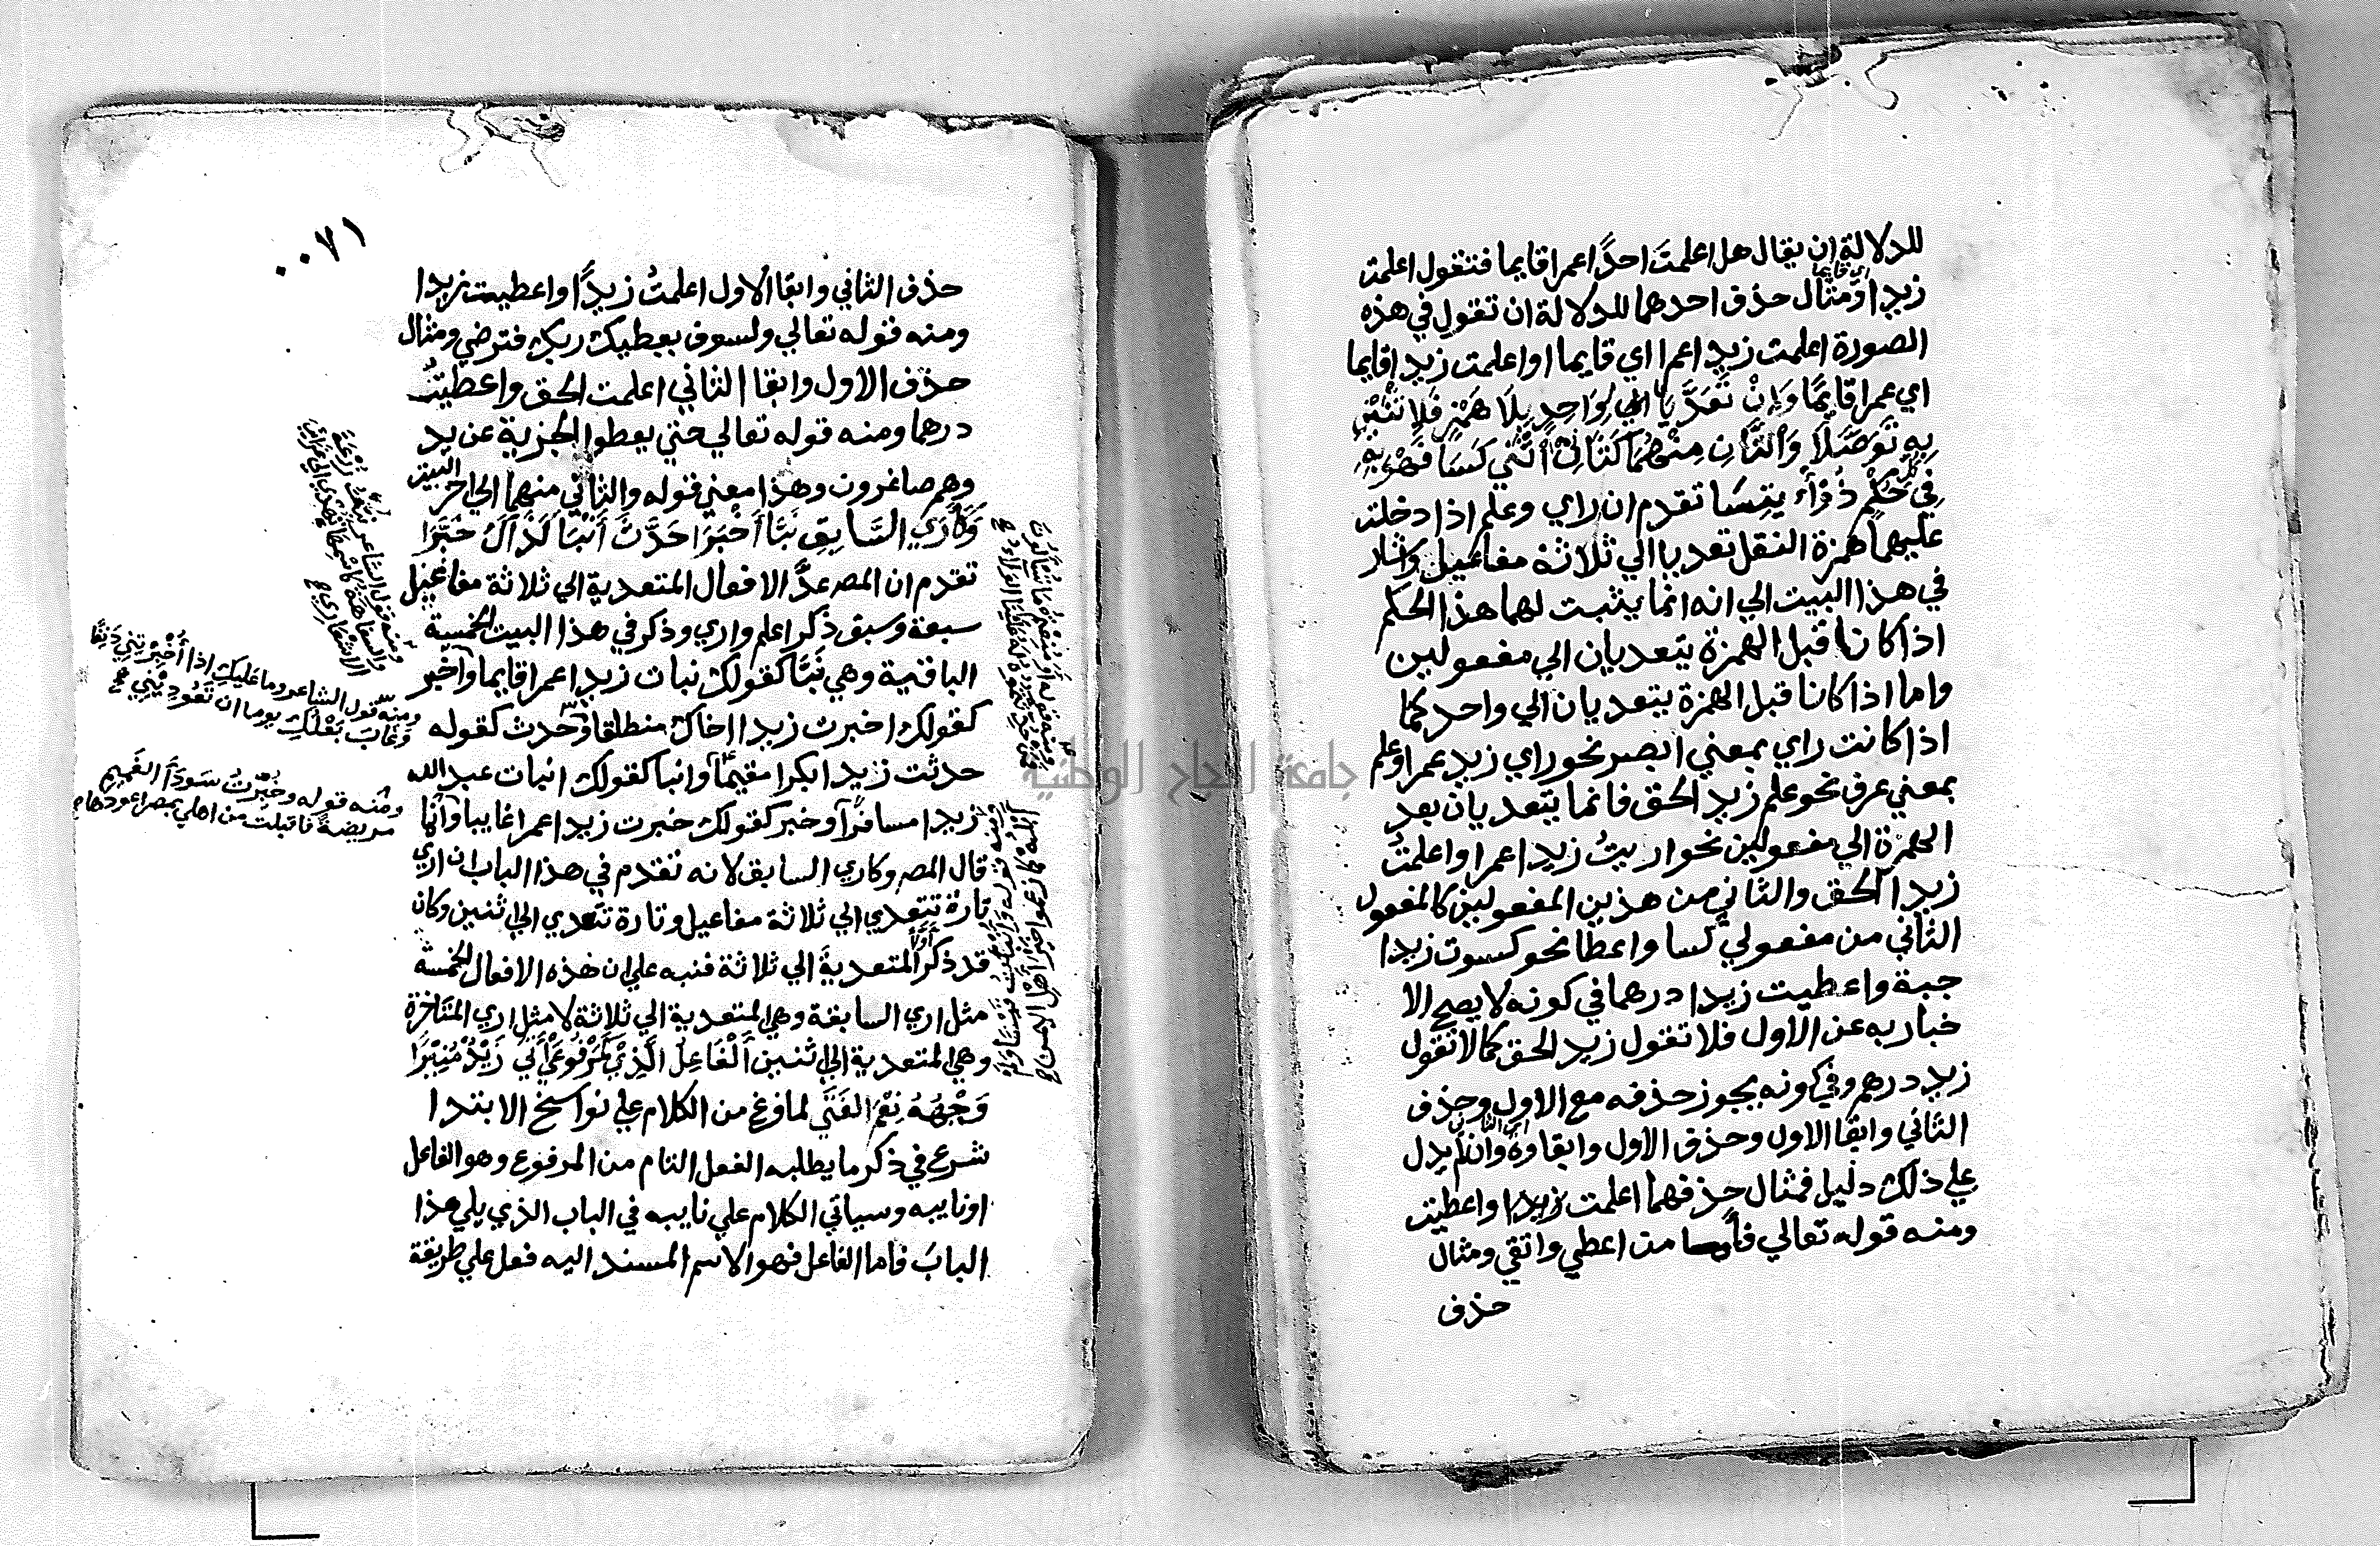 للدلالة ان يقال هل اعلمتَ احدًا عمرا قايما فتقول اعلمت
زيدا ومثال حذف احدهما للدلالة ان تقول في هذه
اي قايما
الصورة اعلمت زيدا عمرا اي قايما او اعلمت زيدا قايما
اي عمرا قايمًا وَاِنْ تَعَدَّيَا الي لِوَاحِدٍ بِلَا هَمْزٍ فَلِاثْنَيْنِ
بِهِ تَوَصَّلَا وَالثَّانِ مِنْهُمَا كَثَانِي اثْنَيْ كَسَا فَهْوَ بِهِ
فِي كُلِّ حُكْمٍ ذُو ائْتِسَا تقدم ان راي وعلم اذا دخلت
عليهما همزة النقل تعديا الي ثلاثة مفاعيل واشار
في هذا البيت الي انه انما يثبت لهما هذا الحكم
اذا كانا قبل الهمزة يتعديان الي مفعولين
واما اذا كانا قبل الهمزة يتعديان الي واحد كما
اذا كانت راي بمعني ابصر نحو راي زيد عمرا وعلم
بمعني عرف نحو علم زيد الحق فانما يتعديان بعد
الهمزة الي مفعولين نحو اريتُ زيدا عمرا واعلمتُ
زيدا الحق والثاني من هذين المفعولين كالمفعول
الثاني من مفعولي كسا واعطا نحو كسوت زيدا
جبة واعطيت زيدا درهما في كونه لا يصح الا
خبار به عن الاول فلا تقول زيد الحق كما لا تقول
زيد درهم وفي كونه يجوز حذفه مع الاول وحذف
الثاني وابقا الاول وحذف الاول وابقاوه وان لم يدل
اي الثاني
علي ذلك دليل فمثال حذفهما اعلمت زيدا واعطيت
ومنه قوله تعالي فأما من اعطي واتقي ومثال
حذف
٠٠٧١
حذف الثاني وابقا الاول اعلمتُ زيدًا واعطيت زيدا
ومنه قوله تعالي ولسوف يعطيك ربك فترضي ومثال
حذف الاول وابقا الثاني اعلمت الحق واعطيتُ
درهما ومنه قوله تعالي حتي يعطوا الجزية عن يد
وهم صاغرون وهذا معني قوله والثاني منهما الي اخر البيتين
وَكَارَي السَّابِقِ نَبَّا أَخْبَرَا حَدَّثَ أَنْبَا كَذَاكَ خَبَّرَا
تقدم ان المص عدَّ الافعال المتعدية الي ثلاثة مفاعيل
سبعة وسبق ذكر اعلم واري وذكر في هذا البيت الخمسة
الباقية وهي نَبَّا كقولك نبات زيدا عمرا قايما وأخبر
كقولك اخبرت زيدا اخاك منطلقا وحدث كقوله
حدثت زيدا بكرا مقيمًا وانبا كقولك انبات عبد الله
زيدا مسافرًا وخبر كقولك خبرت زيدا عمرا غايبا وانما
قال المص وكاري السابق لانه تقدم في هذا الباب ان اري
تارة تتعدي الي ثلاثة مفاعيل وتارة تتعدي الي اثنين وكان
قد ذكر أولًا المتعدية الي ثلاثة فنبه علي ان هذه الافعال الخمسة
مثل اري السابقة وهي المتعدية الي ثلاثة لا مثل اري المتاخرة
وهي المتعدية الي اثنين اَلْفَاعِلُ الَّذِي كَمَرْفُوعَيْ أَتَي زَيْدٌ مُنِيْرًا
وَجْهُهُ نِعْمَ الفَتَي لما فرغ من الكلام علي نواسخ الابتدا
شرع في ذكر ما يطلبه الفعل التام من المرفوع وهو الفاعل
او نايبه وسياتي الكلام علي نايبه في الباب الذي يلي هذا
الباب فاما الفاعل فهو الاسم المسند اليه فعل علي طريقة
ومنه قول الشاعر نُبِّئْتُ زُرْعَةَ
والسفاهة كاسمها يهدي الي غرائب
الاشعار
ومنه قول الشاعر وما عليكِ اذا أُخْبِرْتِنِي دَنِفًا
وغابَ بَعْلُكِ يوما ان تعودِيني
ومنه قوله وخُبِّرْتُ سَودَآ الغَمِيمِ
مريضةً فاقبلت من اهلي بمصر اعودها
جامعة النجاح الوطنية